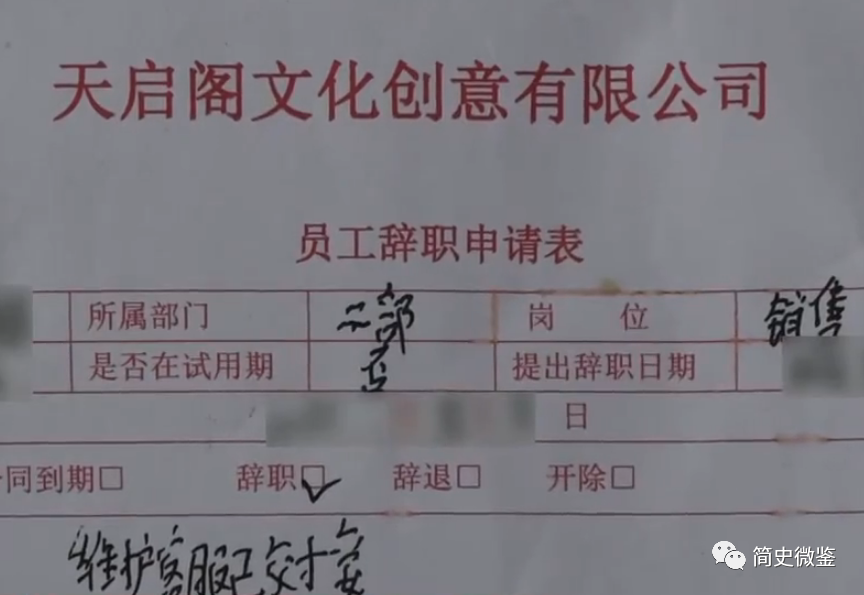 天启阁文化创意有限公司
员工辞职申请表
所属部门 二部 岗 位 销售
是否在试用期 否 提出辞职日期
日
同到期□ 辞职□✓ 辞退□ 开除□
维护客服工交
简史微鉴